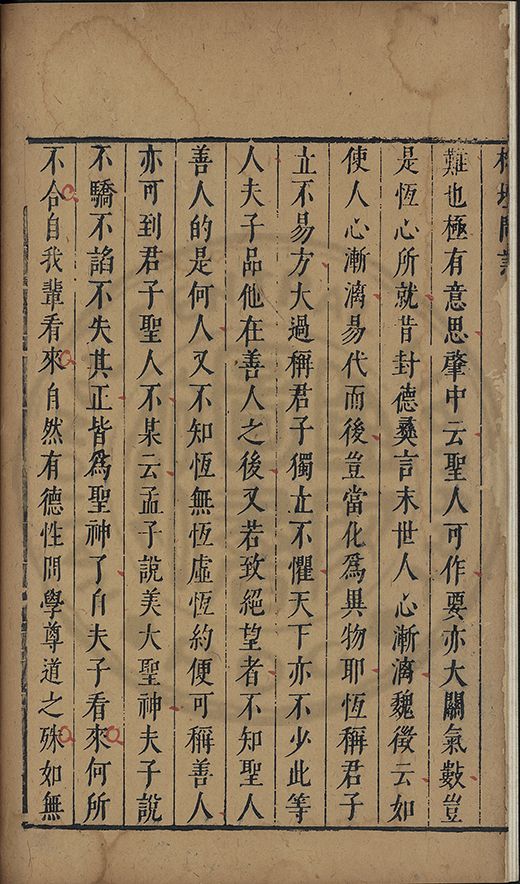 難也極有意思肇中云聖人可作要亦大關氣數豈
是恆心所就昔封德彝言末世人心漸漓魏徵云如
使人心漸漓易代而後豈當化爲異物耶恆稱君子
立不易方大過稱君子獨立不懼天下亦不少此等
人夫子品他在善人之後又若致絕望者不知聖人
善人的是何人又不知恆無恆虛恆約便可稱善人
亦可到君子聖人不某云孟子說美大聖神夫子說
不驕不諂不失其正皆爲聖神了自夫子看來何所
不合自我輩看來自然有德性問學尊道之殊如無